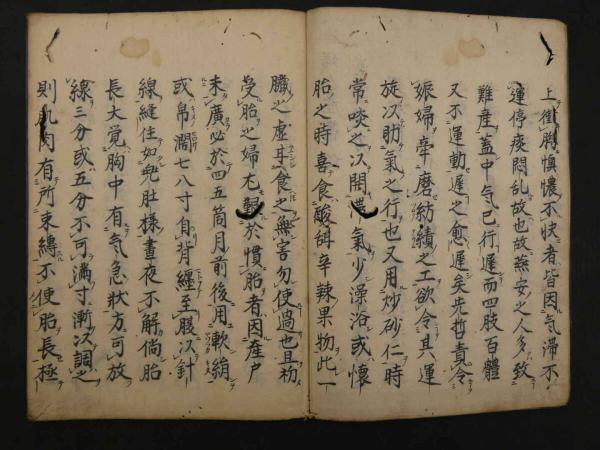 上衝胸懊憹不快者皆因氣滞不
運停痰悶乱故也故燕安之人多致
難産蓋中气已行遅而四肢百體
又不運動遅之愈遅矣先哲責令
娠婦牽磨紡績之工欲令其運
旋以助氣之行也又用炒砂仁時
常啖之以開滞氣少澡浴或懷
胎之時喜食酸鹹辛辣果物此一
臓之虚耳食之無害勿使過也且初
受胎之婦尤緊於慣胎者因産户
未廣必於四五箇月前後用軟絹
或帛濶七八寸自背纏至腹以針
線縫住如兜肚樣晝夜不解倘胎
長大覚胸中有气急狀方可放
線三分或五分不可滿寸漸以調之
則肌肉有所束縛不使胎長極